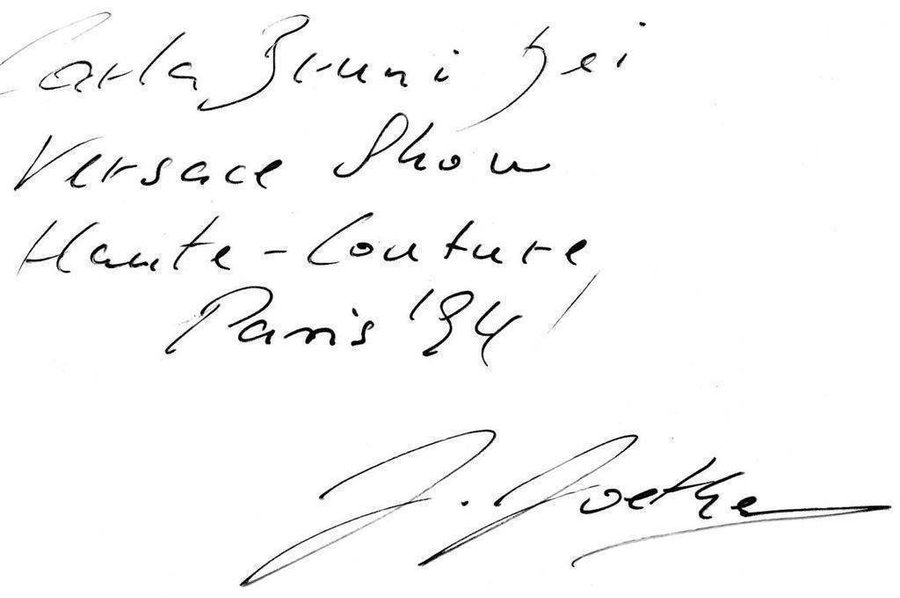 Carla Bruni bei
Versace Show
Haute-Couture,
Paris '94
J. Goethe